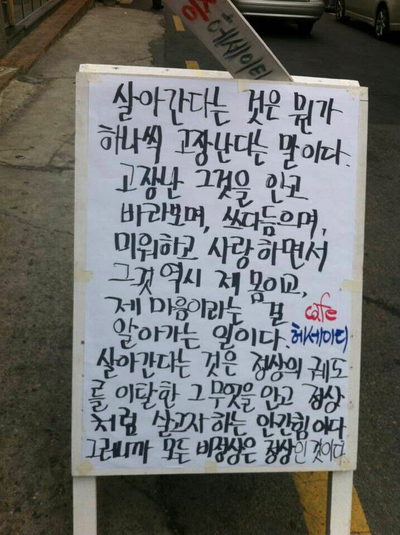 헤세이티
살아간다는 것은 뭔가
하나씩 고장난다는 말이다.
고장난 그것을 안고
바라보며, 쓰다듬으며,
미워하고 사랑하면서
그것 역시 제 몸이고,
제 마음이라는 걸
알아가는 일이다.
cafe
헤세이티
살아간다는 것은 정상의 궤도
를 이탈한 그 무엇을 안고 정상
처럼 살고자 하는 안간힘이다
그러니까 모든 비정상은 정상인 것이다